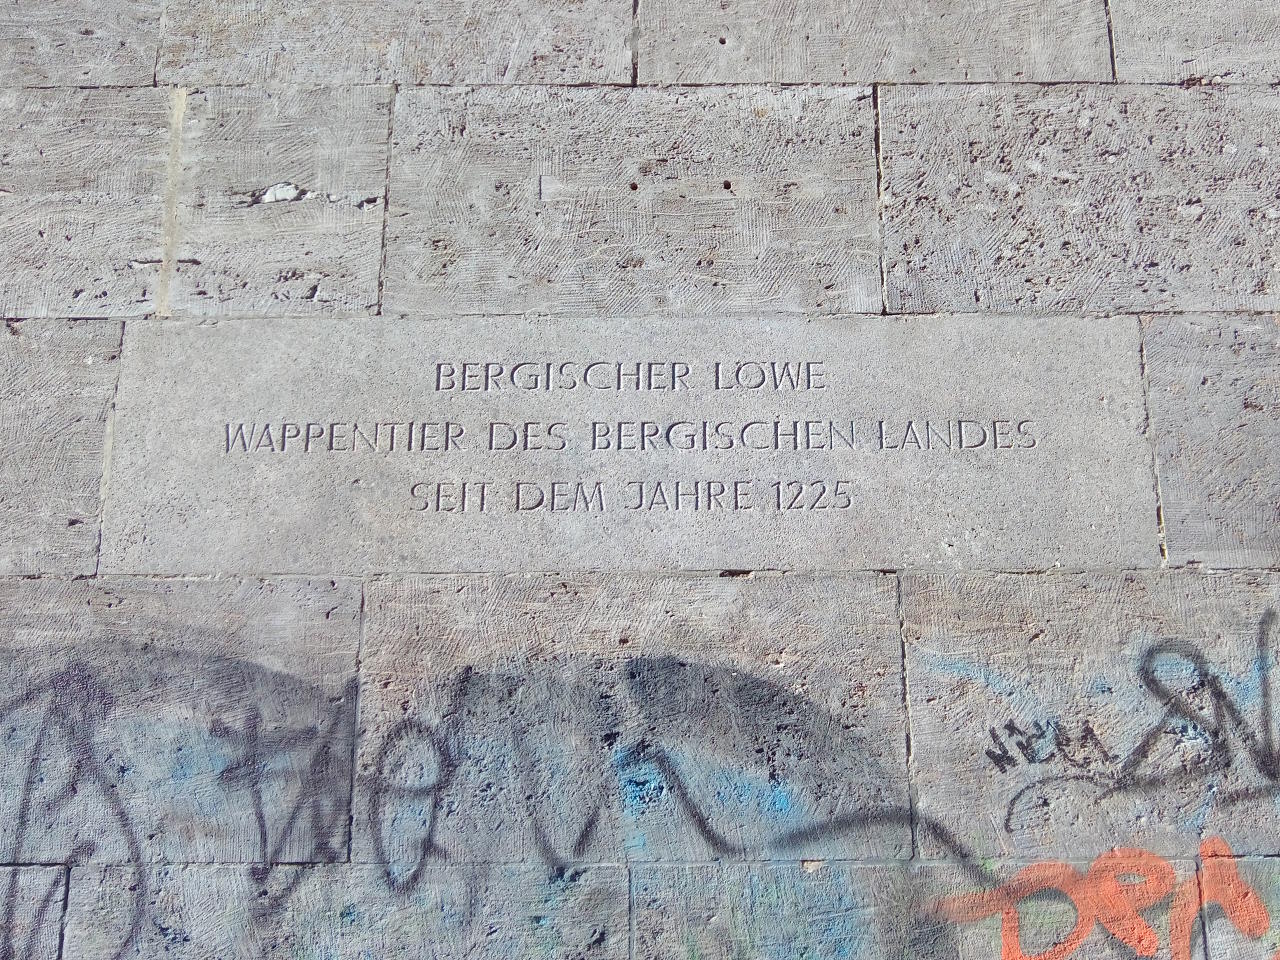 BERGISCHER LÖWE
WAPPENTIER DES BERGISCHEN LANDES
SEIT DEM JAHRE 1225